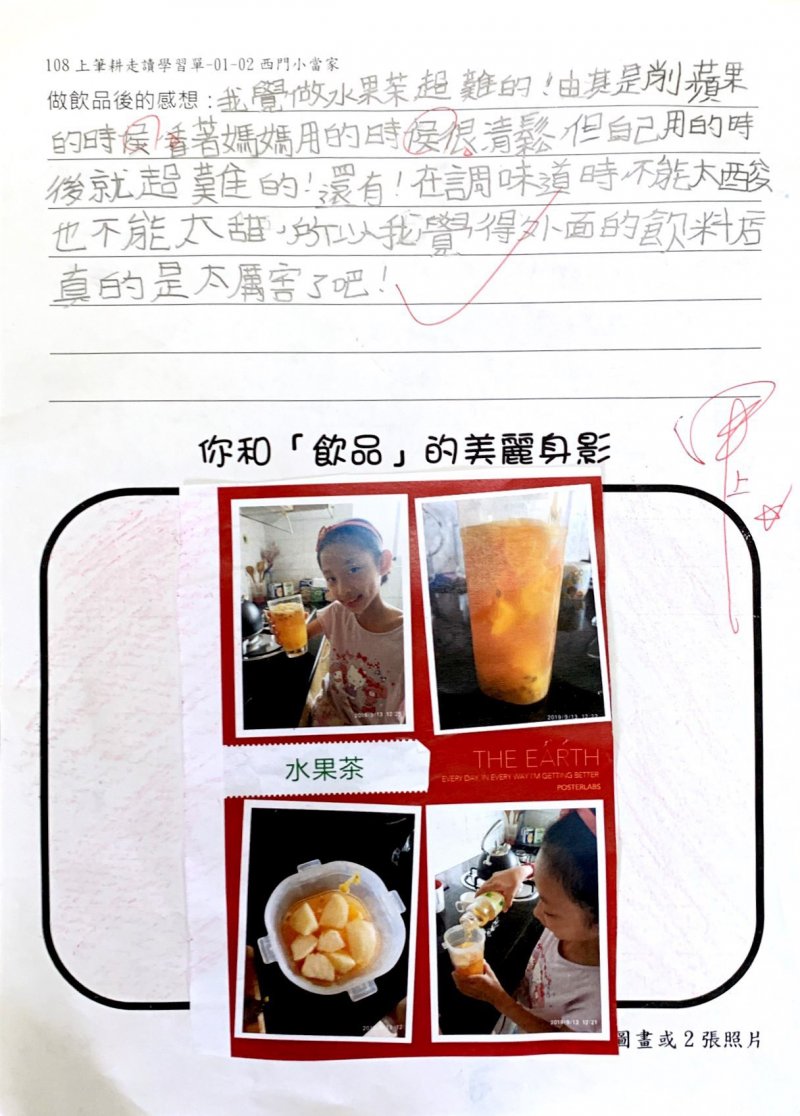 108上筆耕走讀學習單-01-02西門小當家
做飲品後的感想：我覺做水果茶超難的！由其是削蘋果
的時候，看著媽媽用的時候很清鬆，但自己用的時
後就超難的！還有！在調味道時不能太酸
也不能太甜，所以我覺得外面的飲料店
真的是太厲害了吧！
甲上
你和「飲品」的美麗身影
2019/9/13 12:22
水果茶
THE EARTH
EVERY DAY, IN EVERY WAY I'M GETTING BETTER
POSTERLABS
2019/9/13 12:21
圖畫或2張照片